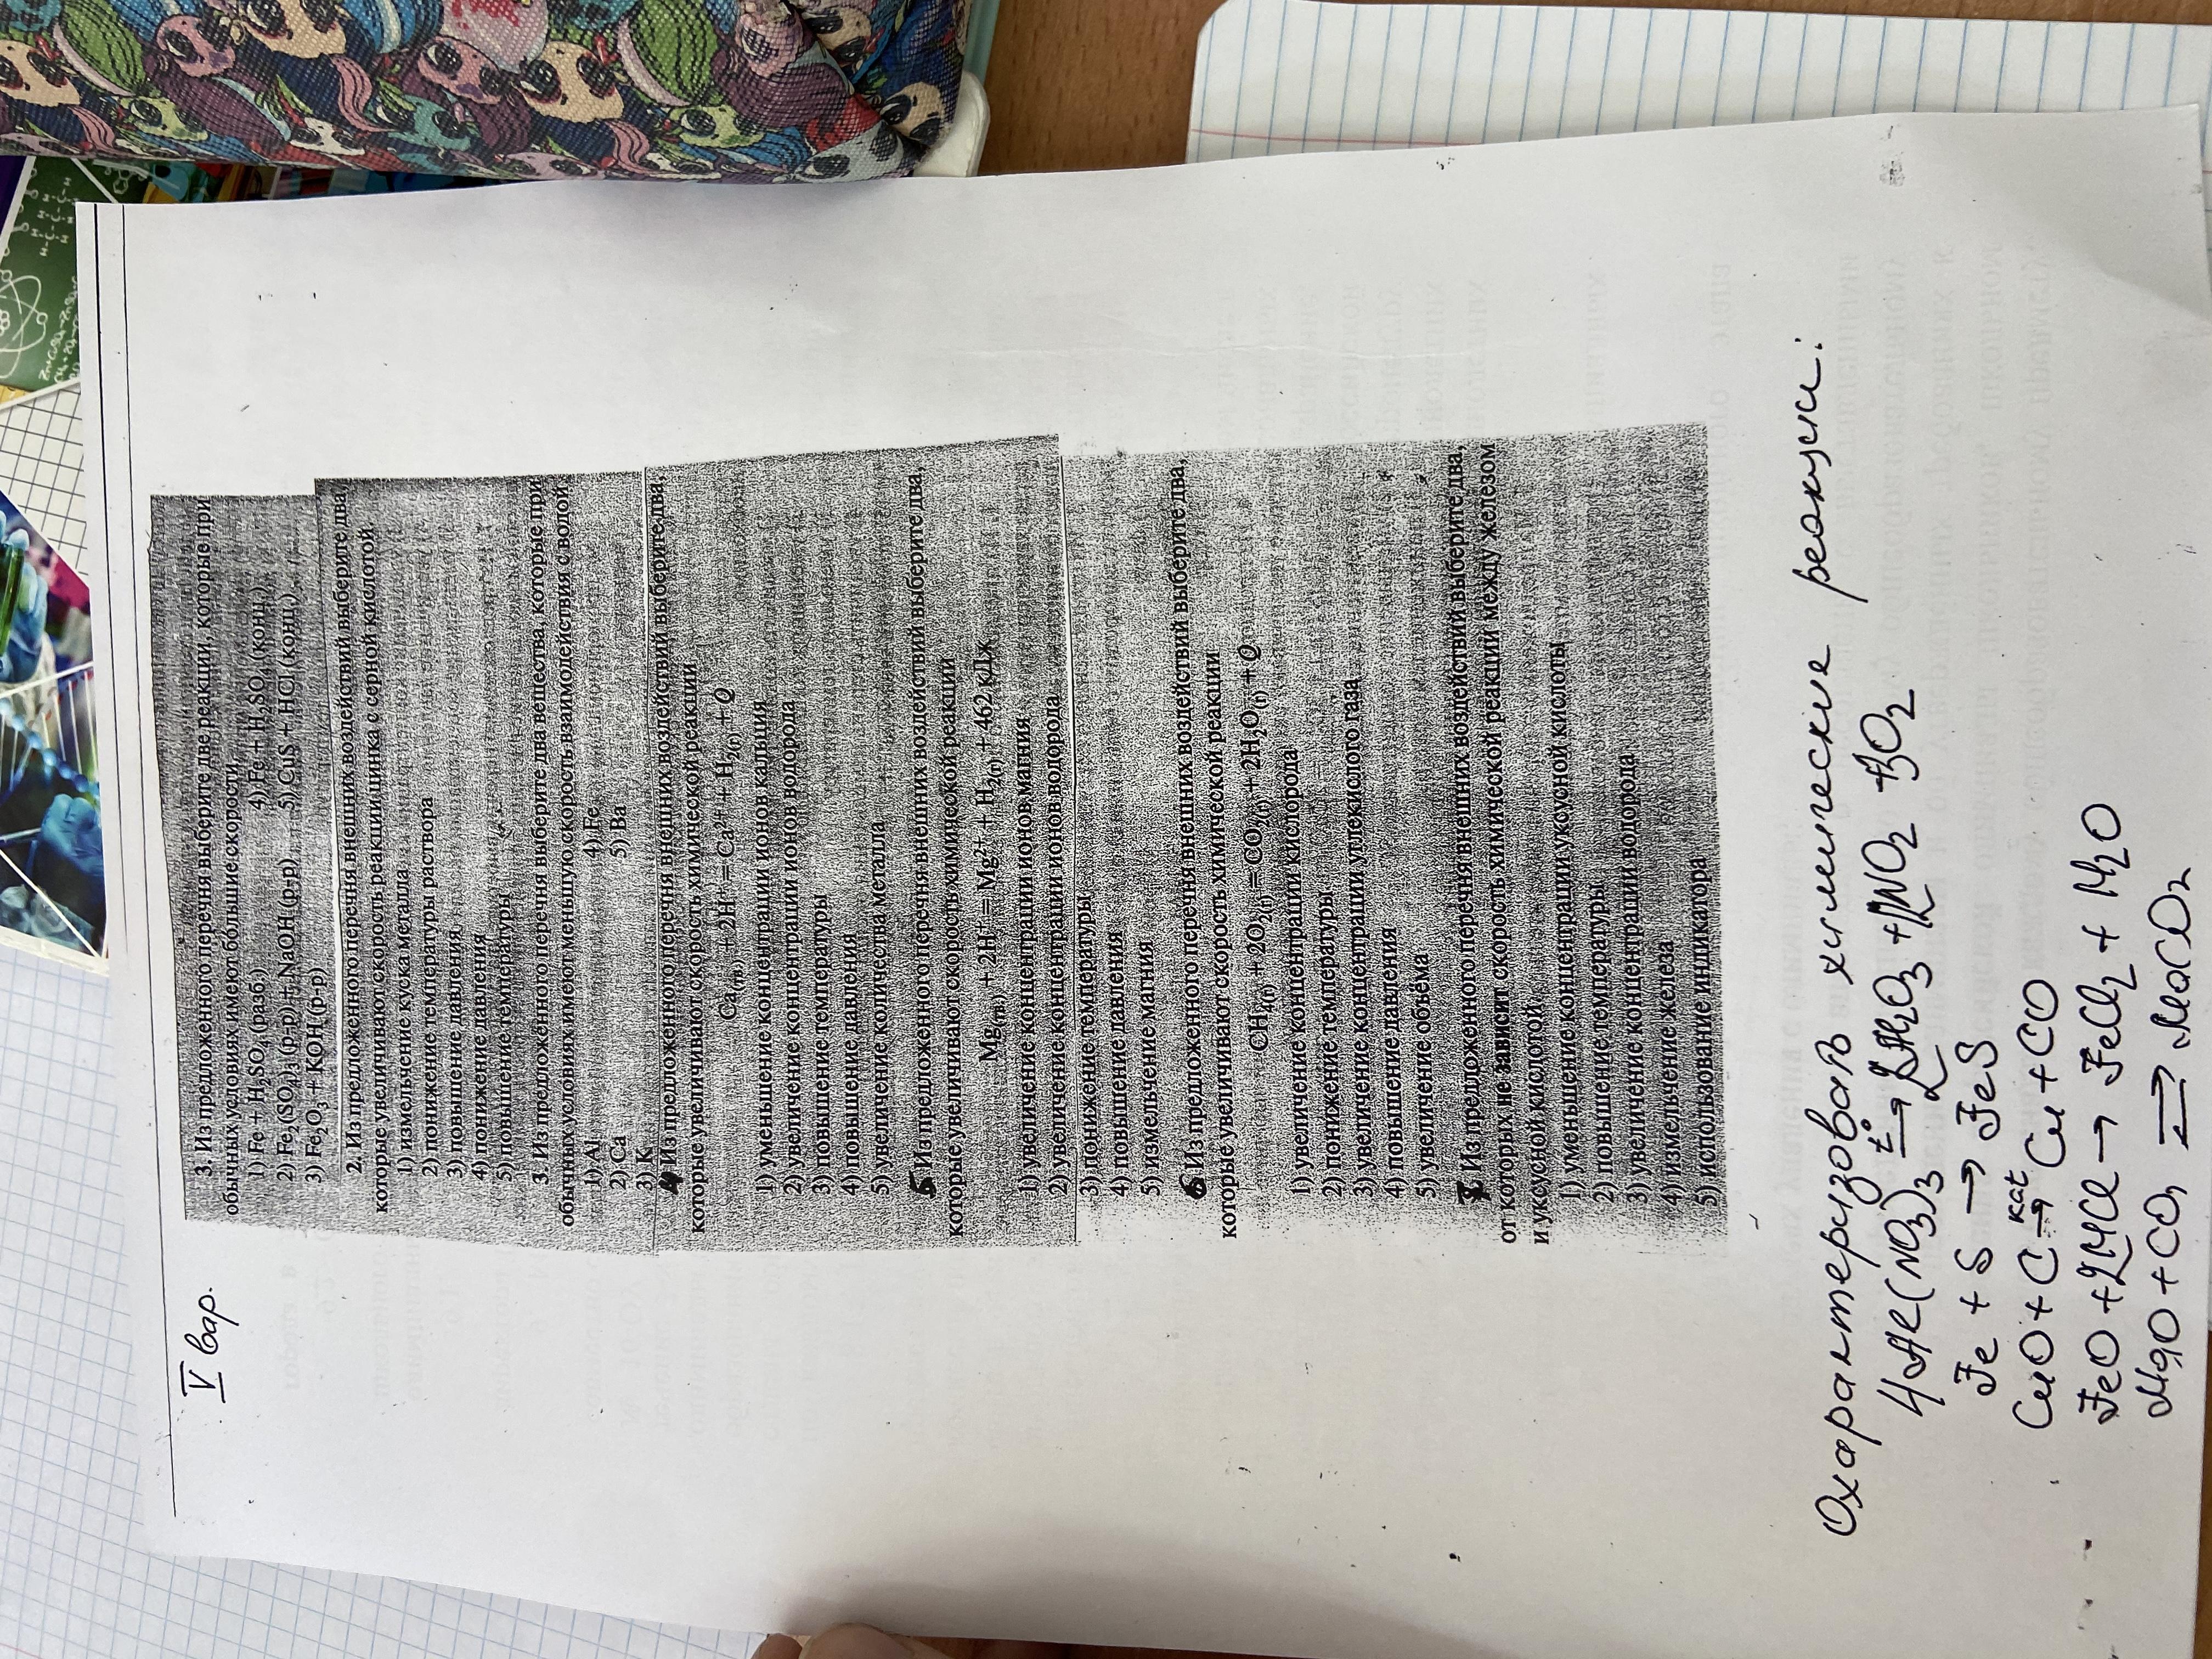 V вар.
3. Из предложенного перечня выберите две реакции, которые при
обычных условиях имеют большие скорости.
1) Fe + H₂SO₄ (разб.) 4) Fe + H₂SO₄ (конц.)
2) Fe₂(SO₄)₃ (р-р) + NaOH (р-р) 5) CuS + HCl (конц.)
3) Fe₂O₃ + KOH (р-р)
2. Из предложенного перечня внешних воздействий выберите два,
которые увеличивают скорость реакции цинка с серной кислотой.
1) измельчение куска металла
2) понижение температуры раствора
3) повышение давления
4) понижение давления
5) повышение температуры
3. Из предложенного перечня выберите два вещества, которые при
обычных условиях имеют меньшую скорость взаимодействия с водой.
1) Al 4) Fe
2) Ca 5) Ba
3) K
4 Из предложенного перечня внешних воздействий выберите два,
которые увеличивают скорость химической реакции
Ca(тв.) + 2H⁺ = Ca²⁺ + H₂(г) + Q
1) уменьшение концентрации ионов кальция
2) увеличение концентрации ионов водорода
3) повышение температуры
4) повышение давления
5) увеличение количества металла
5 Из предложенного перечня внешних воздействий выберите два,
которые увеличивают скорость химической реакции
Mg(тв) + 2H⁺ = Mg²⁺ + H₂(г) + 462 кДж
1) увеличение концентрации ионов магния
2) увеличение концентрации ионов водорода
3) понижение температуры
4) повышение давления
5) измельчение магния
6 Из предложенного перечня внешних воздействий выберите два,
которые увеличивают скорость химической реакции
CH₄(г) + 2O₂(г) = CO₂(г) + 2H₂O(г) + Q
1) увеличение концентрации кислорода
2) понижение температуры
3) увеличение концентрации углекислого газа
4) повышение давления
5) увеличение объёма
7 Из предложенного перечня внешних воздействий выберите два,
от которых не зависит скорость химической реакции между железом
и уксусной кислотой.
1) уменьшение концентрации уксусной кислоты
2) повышение температуры
3) увеличение концентрации водорода
4) измельчение железа
5) использование индикатора
Охарактеризовать химические реакции:
4Al(NO₃)₃ t°→ 2Al₂O₃ + 12NO₂ + 3O₂
Fe + S → FeS
CuO + C kat→ Cu + CO
FeO + 2HCl → FeCl₂ + H₂O
MgO + CO₂ ⇄ MgCO₃